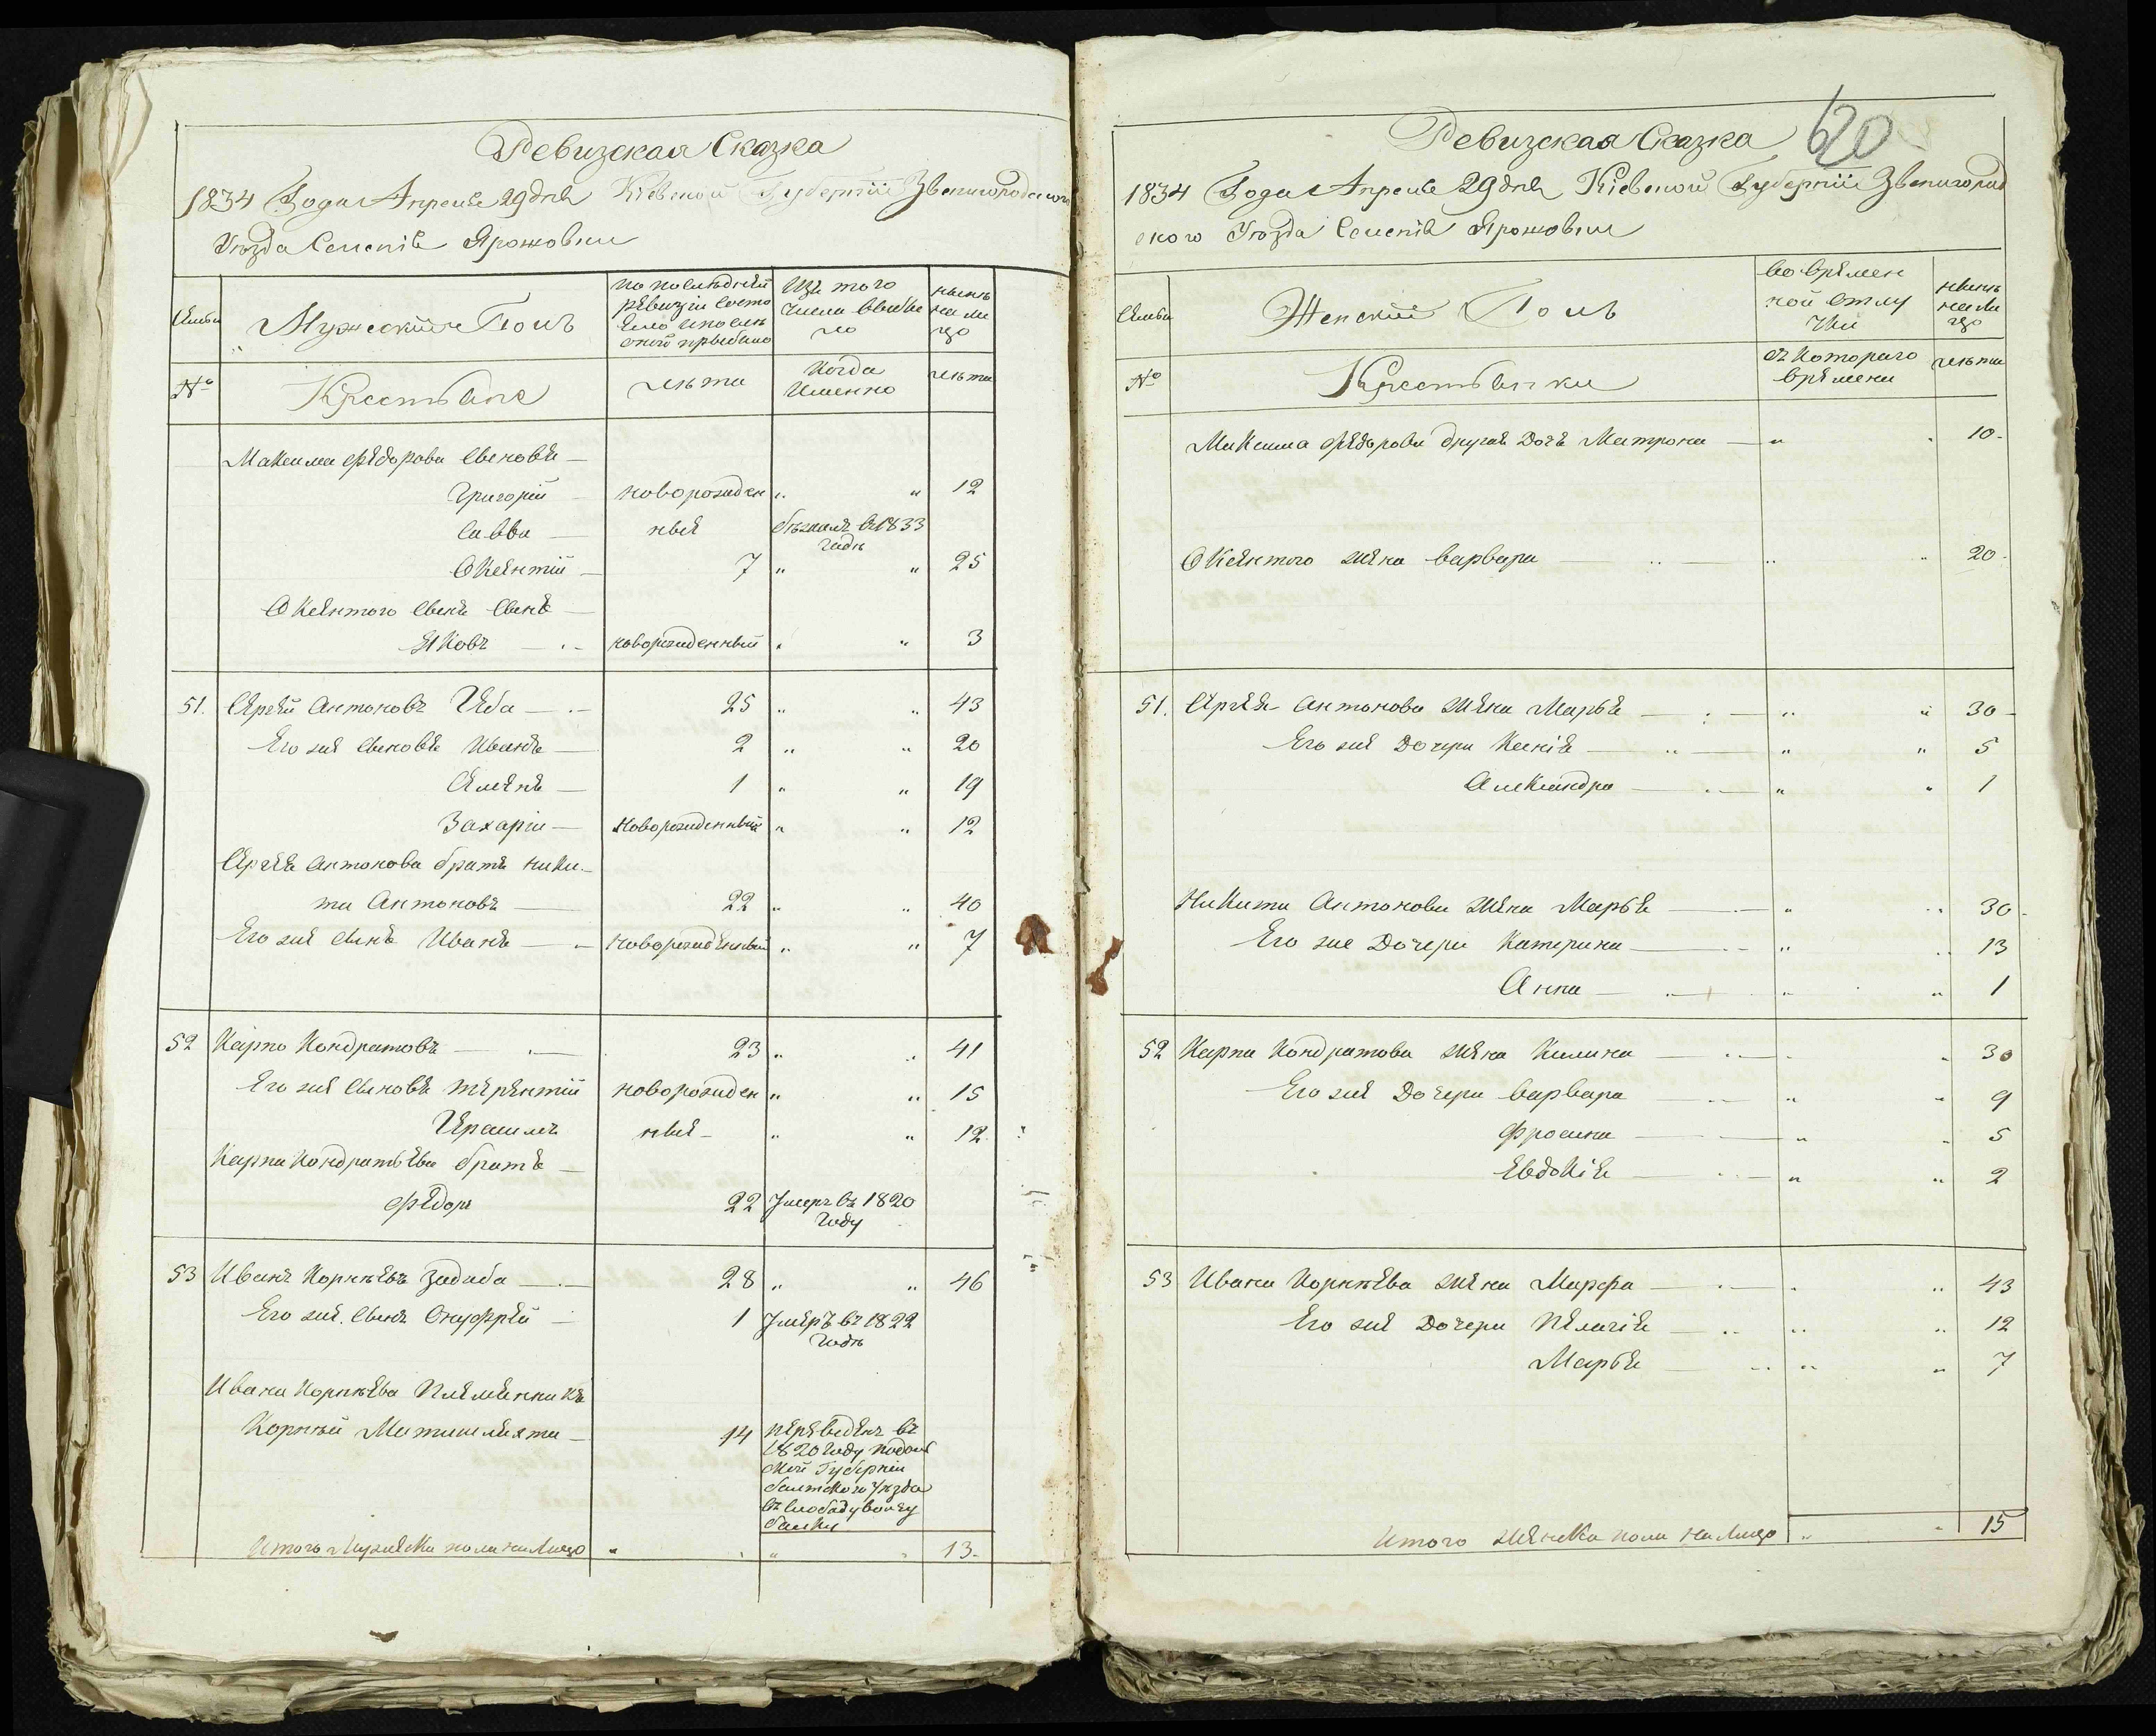 Ревизская Сказка
1834 Года Апреля 29 дня Кіевской Губерніи Звенигородского
Уезда Селенія Ярошовки
Семьи
Мужескій Полъ
по последней
ревизіи состо
яло и после
оной прибыло
Изъ того
числа выбы
ло
ныне
на ли
цо
№
Крестьяне
лета
Когда
Именно
лета
Максима Федорова сыновья —
Григорій — новорожден „ „ 12
Савва — ныя бежалъ въ 1833
годе
Окентій — 7 „ „ 25
Окентого сынъ —
Яковъ — новорожденный „ „ 3
51. Сергей Антоновъ Геба — 25 „ „ 43
Его же сыновья Иванъ — 2 „ „ 20
Семенъ — 1 „ „ 19
Захарій — новорожденный „ „ 12
Сергея Антонова братъ Ники-
та Антоновъ — 22 „ „ 40
Его же сынъ Иванъ — новорожденный „ „ 7
52 Карпо Кондратовъ — 23 „ „ 41
Его же сыновья Терентій новорожден „ „ 15
Герасимъ ныя — „ „ 12
Карпа Кондратьева братъ —
Федоръ 22 Умеръ въ 1820
году
53 Иванъ Корнеевъ Задиба — 28 „ „ 46
Его же сынъ Онуфрей — 1 Умеръ въ 1822
годе
Ивана Корнеева Племянникъ
Корней — 14 переведенъ въ
1820 году подоль
ской Губерніи
балтского Уезда
въ слободу
балку
Итого Мужеска пола на Лицо „ „ 13.
620
Ревизская Сказка
1834 Года Апреля 29 дня Кіевской Губерніи Звенигород
ского Уезда Селенія Ярошовки
Семьи
Женскій Полъ
во времен
ной отлу
чки
ныне
на ли
цо
№
Крестьянки
съ которого
времени
лета
Максима Федорова другая Дочь Матрона — „ „ 10
Окентого жена Варвара — „ „ 20
51. Сергея Антонова жена Марья — „ „ 30
Его же Дочери Ксенія — „ „ 5
Александра — „ „ 1
Никиты Антонова жена Марья — „ „ 30
Его же Дочери Катерина — „ „ 13
Анна — „ „ 1
52 Карпа Кондратова жена Килина — „ „ 30
Его же Дочери Варвара — „ „ 9
Фросина — „ „ 5
Евдокія — „ „ 2
53 Ивана Корнеева жена Марфа — „ „ 43
Его же Дочери Пелагія — „ „ 12
Марья — „ „ 7
Итого Женска пола на Лицо „ „ 15